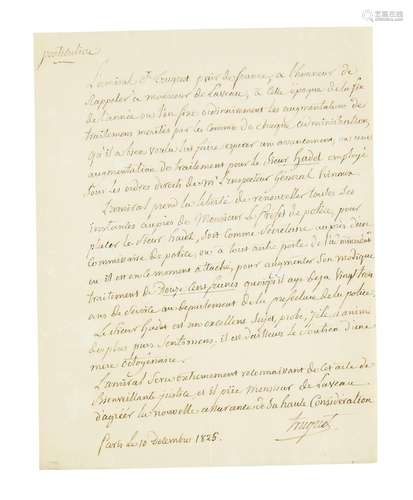 particulière
L'amiral Ct Truguet pair de france, a l'honneur de
rappeler a monsieur de Laveau, à cette époque de la fin
de l'année ou l'on fixe ordinairement les augmentations de
traitement merités par les commis de chaque administration,
qu'il a bien voulu lui faire esperer un avancement, ou une
augmentation de traitement pour le Sieur hadel employé
sous les ordres directs de Mr L'inspecteur Général
L'amiral prend la liberté de renouveller toutes ses
instances auprès de Monsieur le Prefet de police, pour
placer le Sieur hadel, soit comme Secretaire auprès d'un
Commissaire de police, ou à tout autre poste de la
ou il est en ce moment attaché, pour augmenter son modique
traitement de Douze Cens francs quoiqu'il aye deja Vingt trois
ans de Service au departement de la prefecture de la police.
Le Sieur hadel est un excellent Sujet, probe, zelé, et animé
des plus purs Sentimens, il est d'ailleurs le Soutien d'une
mere octogenaire.
L'amiral Sera extrêmement reconnaissant de cet acte de
bienveillante justice et il prie monsieur de Laveau
d'agréer la nouvelle assurance de Sa haute Consideration
Truguet
Paris le 10 Decembre 1825.